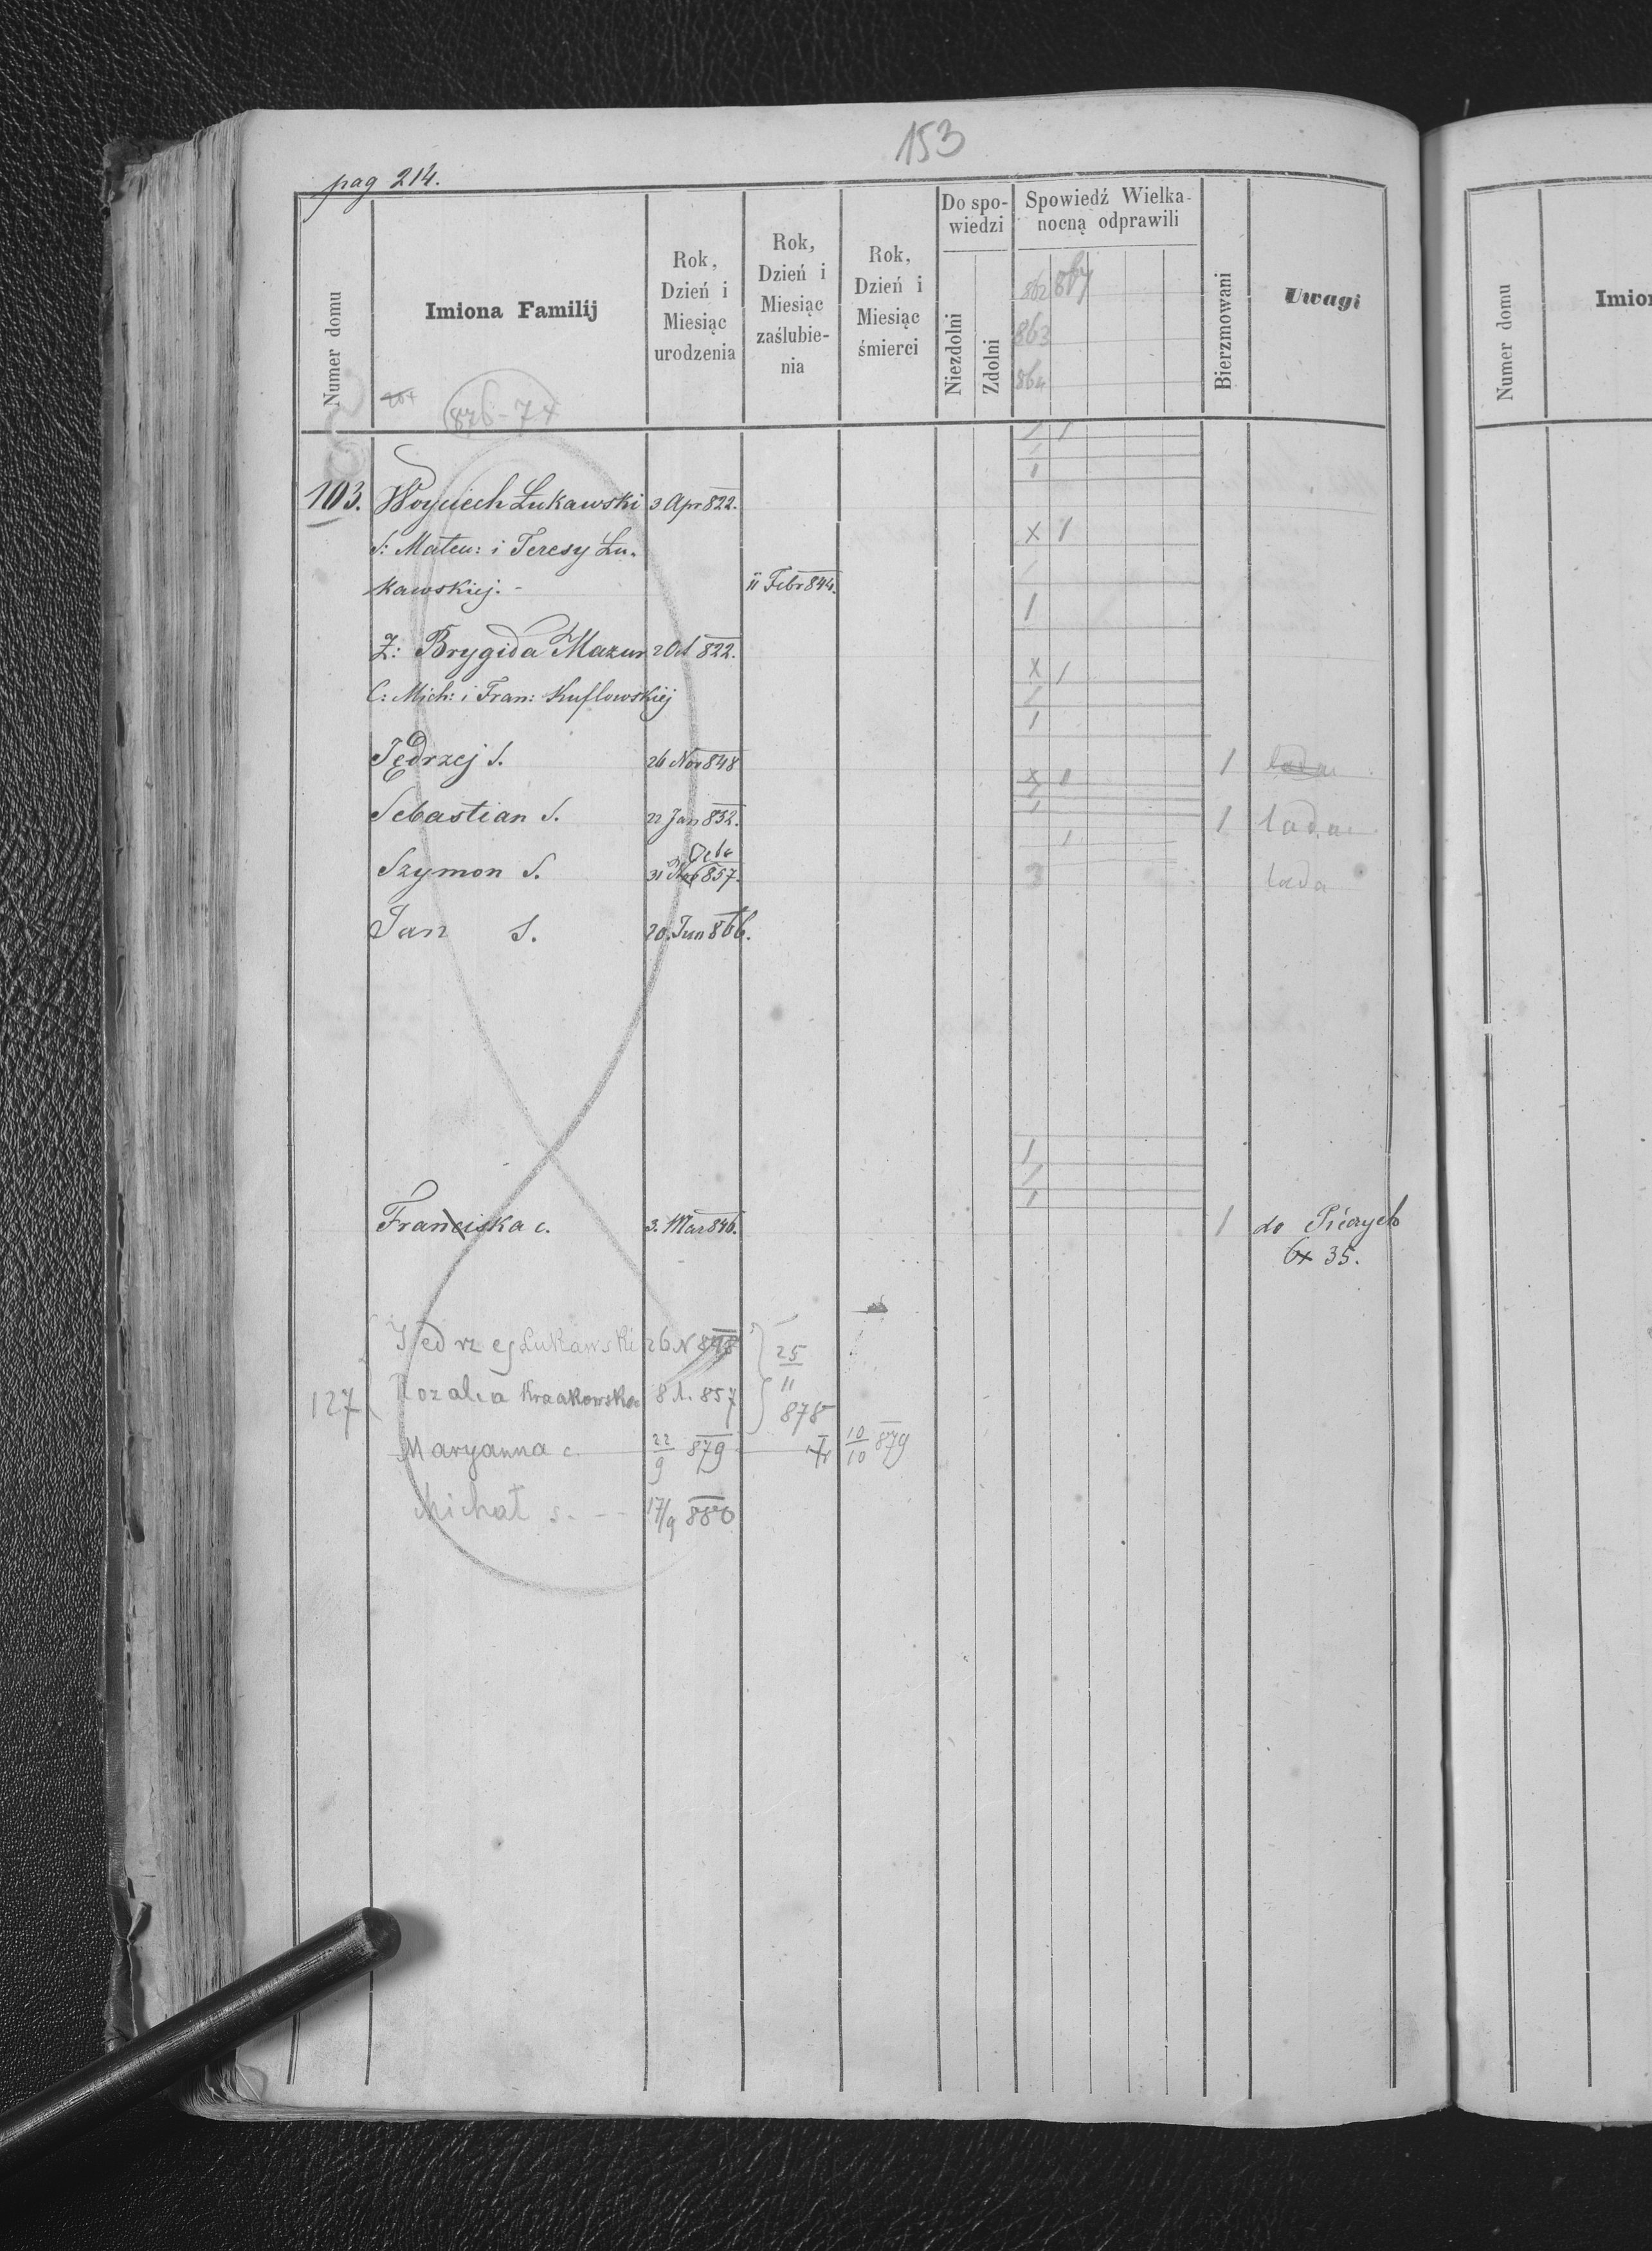 153
pag 214.
Numer domu
Imiona Familij
Rok, Dzień i Miesiąc urodzenia
Rok, Dzień i Miesiąc zaślubie-nia
Rok, Dzień i Miesiąc śmierci
Do spo-wiedzi
Niezdolni
Zdolni
Spowiedź Wielka-nocną odprawili
862
863
864
Bierzmowani
Uwagi
Numer domu
876-77
103. Woyciech Łukawski 3 Apr 822.
S: Mateu: i Teresy Łu-
kawskiej. - 11 Febr 844.
Ż: Brygida Mazur 2 Oct 822.
C: Mich: i Fran: Kuflowskiej
Jędrzej S. 26 Nov 848 1
Sebastian S. 22 Jan 852. 1 lada
Octo
Szymon S. 31 857. 3 lada
Jan S. 20. Jun 866.
Franciska c. 3. Mar 846. 1 do
35.
Jedrzej Łukawski 26 N 848 25
127 Rozalia Kraakowska 8 1. 857 11
878
Maryanna c. 22/9 879 10/10 879
Michał s. - - 17/9 880